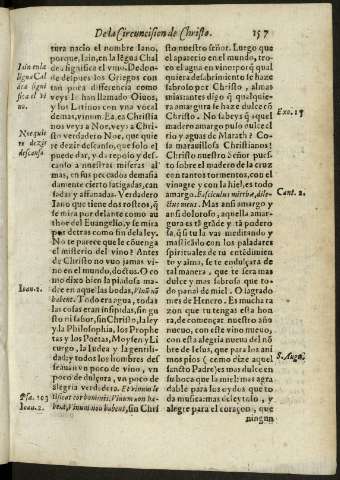 De la Circuncision de Christo. 157
tura nacio el nombre Iano,
porque, Iain, en la lēgua Chal
dea, significa el vino. De don
de despues los Griegos con
tan poca diferencia como
veys le han llamado Oinos,
y los Latinos con vna vocal
demas, vinum. Ea, ea Christia
nos veys a Noe, veys a Chri
sto verdadero Noe, que quie
re dezir descanso, que solo el
puede dar, y da reposo y des
canso a nuestras miseras al
mas, en sus peccados demasia
damente cierto fatigadas, can
sadas y affanadas. Verdadero
Iano que tiene dos rostros, q̄
se mira por delante como au
thor del Euangelio, y se mira
por detras como fin de la ley.
No te parece que le cōuenga
el misterio del vino? Antes
de Christo no vuo jamas vi
no en el mundo, doctus. O co
mo dixo bien la piadosa ma-
dre en aquellas bodas, Vinū nō
habent. Todo era agua, todas
las cosas eran insipidas, sin gu
sto ni sabor, sin Christo, la ley
y la Philosophia, los Prophe
tas y los Poetas, Moysen y Li
curgo, la Iudea y la gentili-
dad; y todos los hombres des
seauan vn poco de vino, vn
poco de dulçura, vn poco de
alegria verdadera. Et vinum le
tificat cor hominis: Vinum non ha-
bent, Vinum non habent, sin Chri
Iain en la
lēgua Cal
dea signi
fica el vi
no.
Noe quie
re dezir
descanso.
Ioan. 2.
Psa. 103
Ioan. 2.
sto nuestro señor. Luego que
el aparecio en el mundo, tro-
co el agua en vino: por q̄ qual
quiera desabrimiento se haze
sabroso por Christo, almas
mias: antes digo q̄ qualquie-
ra amargura se haze dulce en
Christo. No sabeys q̄ aquel
madero amargo pulo dulce el
rio y aguas de Marath? Co
sa marauillosa Christianos!
Christo nuestro Señor pues
to sobre el madero de la cruz
con tantos tormentos, con el
vinagre y con la hiel, es todo
amargo. Fasciculus mirrhæ, dile-
ctus meus. Mas ansi amargo y
ansi doloroso, aquella amar-
gura es tā grāde y tā podero
sa, q̄ si tu la vas meditando y
masticādo con los paladares
spirituales de tu entēdimien
to y alma, se te endulçara de
tal manera, que te sera mas
dulce y mas sabroso que to-
do panal de miel. O la grado
mes de Henero. Es mucha ra
zon que tu tengas esta hon
ra, de començar nuestro año
nueuo, con este vino nueuo,
con esta alegria nueua del nō
bre de Iesus, que para los ani
mos pios (como dize aquel
sancto Padre) es mas dulce en
su boca que la miel: mas agra
dable para los oydos que to
da musica: mas deleytoso, y
alegre para el coraçon, que
ningun
Exo. 15
Cant. 1.
S. Augu.